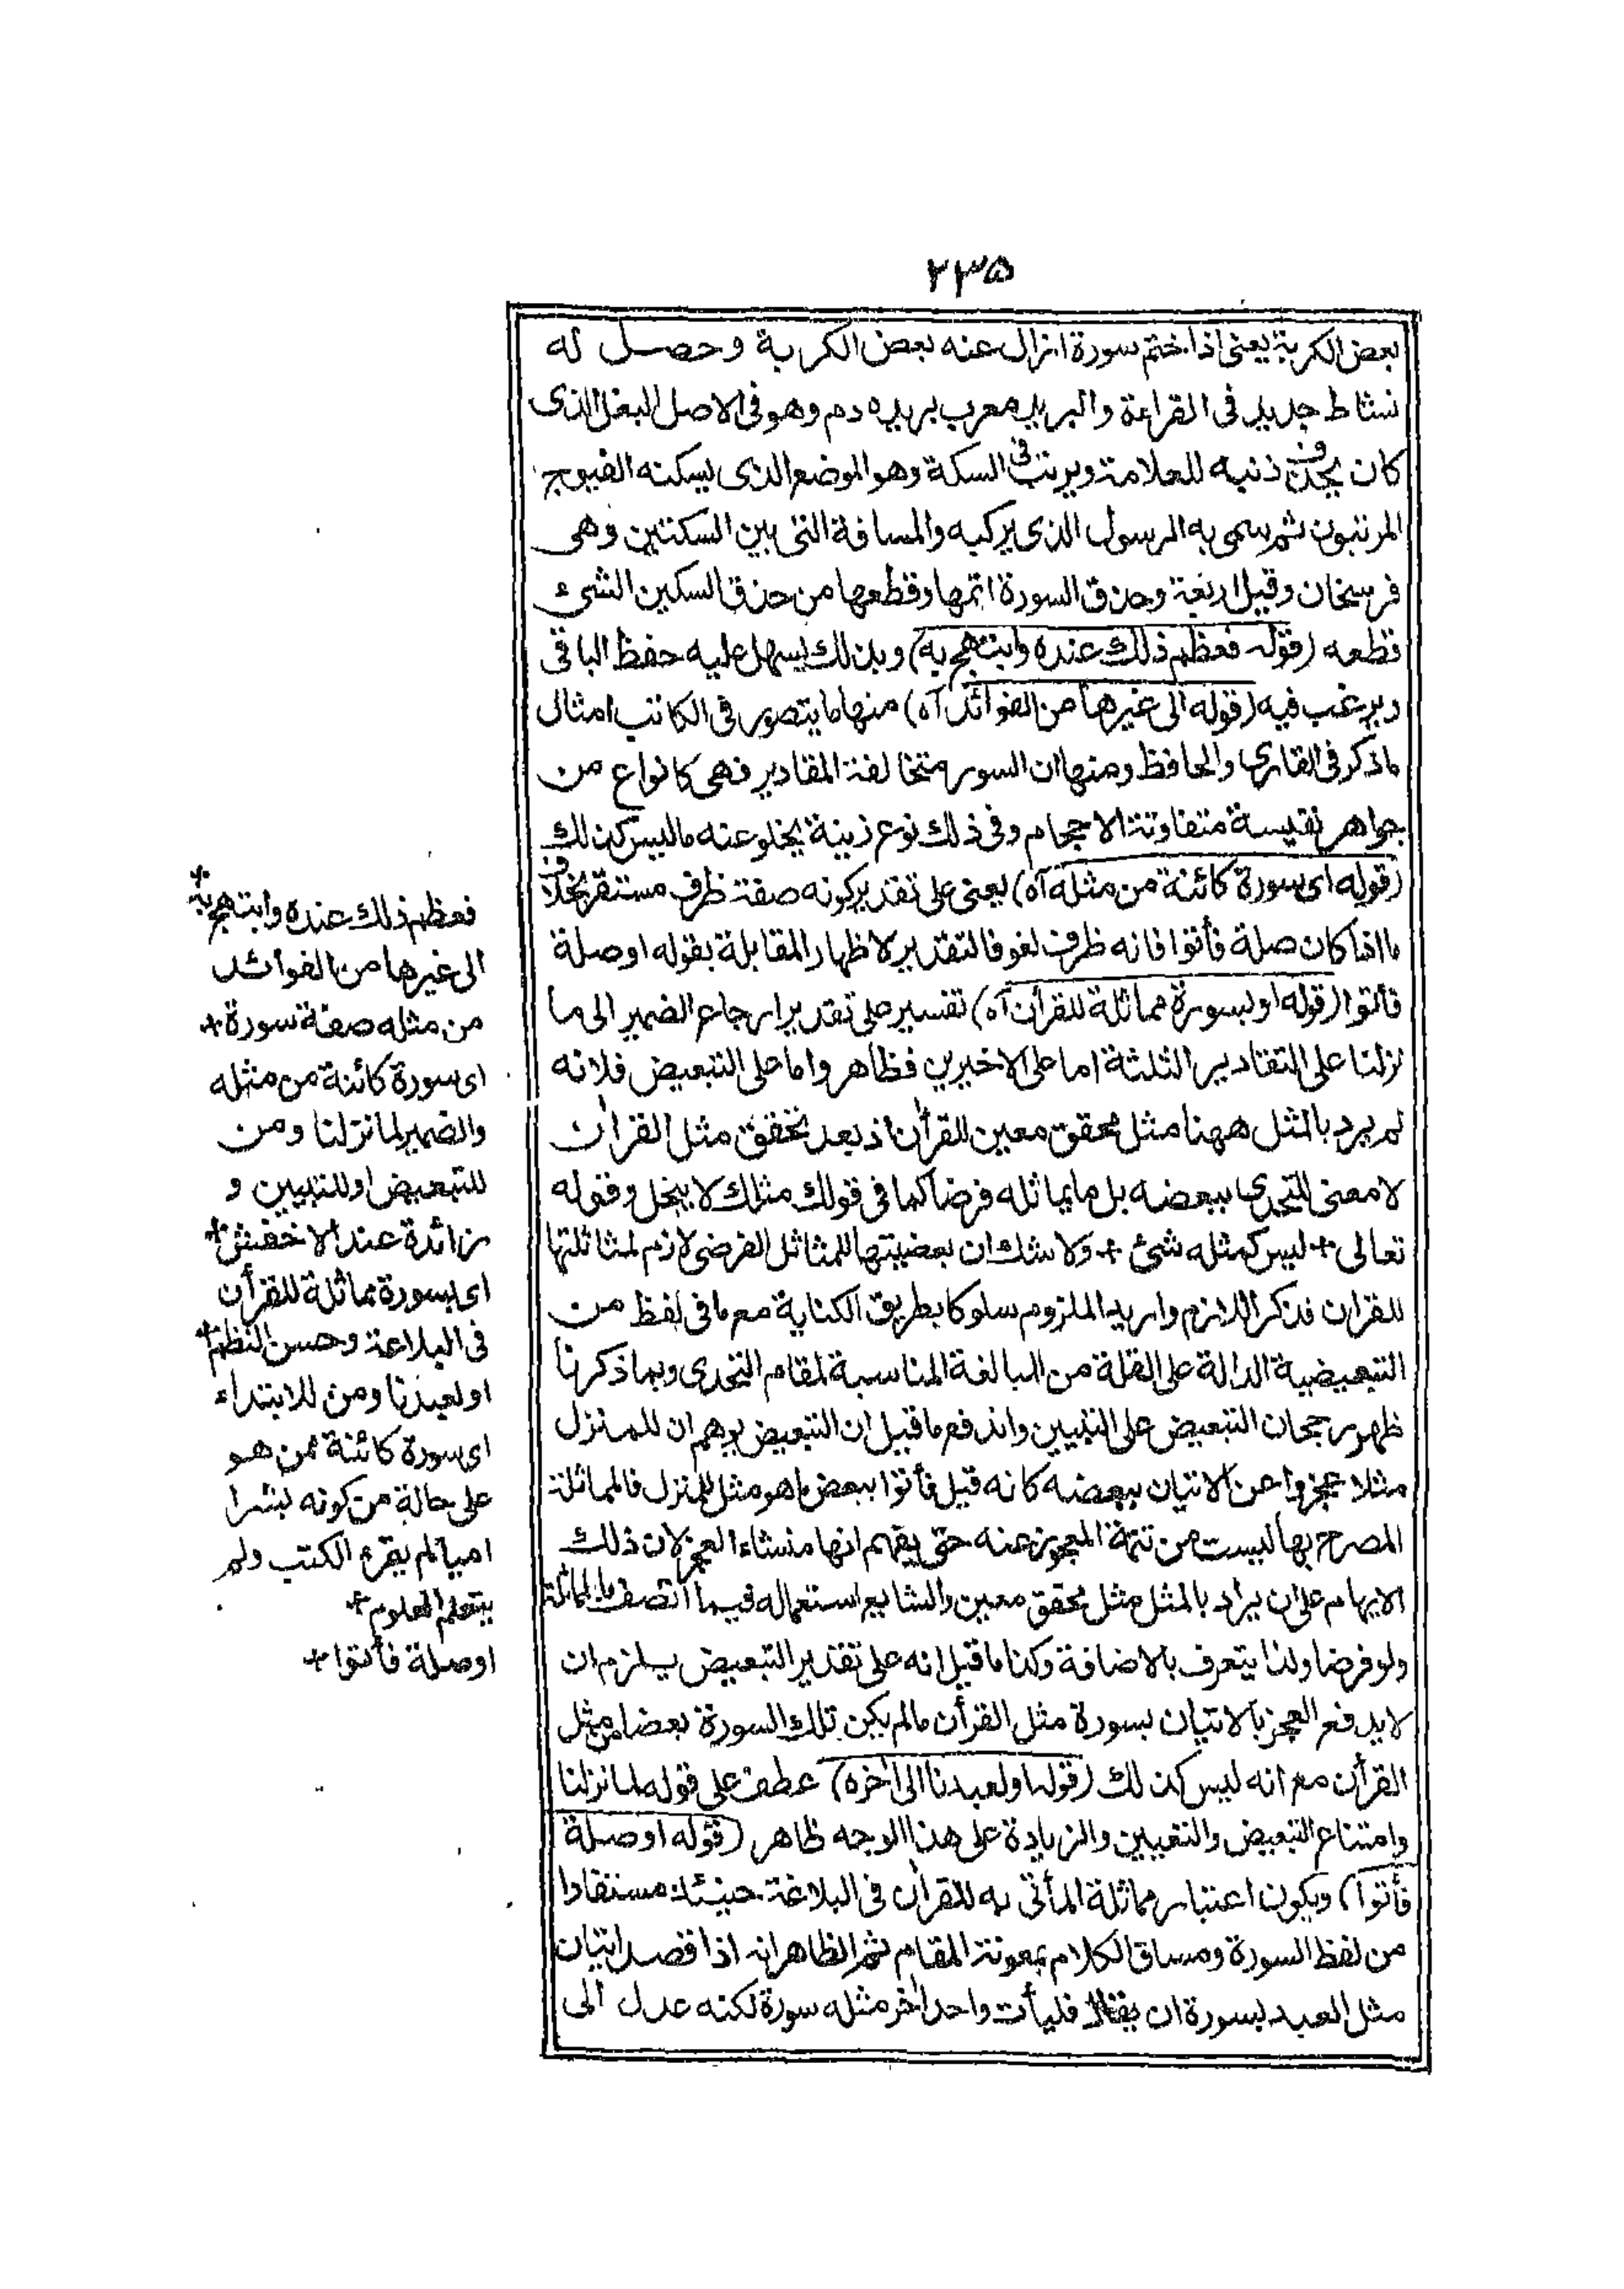 ٢٣٥
بعض الكربة يعنى اذا ختم سورة ازال عنه بعض الكربة وحصل له
نشاط جديد فى القراءة والبريد معرب بريده دم وهو فى الاصل البغل الذى
كان يحذف ذنبه للعلامة ويرتب فى السكة وهو الموضع الذى يسكنه الفيوج
المرتبون ثم سمى به الرسول الذى يركبه والمسافة التى بين السكتين وهى
فرسخان وقيل اربعة وحذق السورة اتمها وقطعها من حذق السكين الشىء
قطعه (قوله فعظم ذلك عنده وابتهج به) وبذلك يسهل عليه حفظ الباقى
ويرغب فيه (قوله الى غيرها من الفوائد آه) منها ما يتصور فى الكاتب امثال
ماذكر فى القارى والحافظ ومنها ان السور متخالفة المقادير فهى كانواع من
جواهر نفيسة متفاوتة الاحجام وفى ذلك نوع زينة يخلو عنه ماليس كذلك
(قوله اى سورة كائنة من مثله آه) يعنى على تقدير كونه صفة ظرف مستقر بخلاف
ما اذا كان صلة فأتوا فانه ظرف لغو فالتقدير لاظهار المقابلة بقوله او صلة
فأتوا (قوله او بسورة مماثلة للقرآن آه) تفسير على تقدير ارجاع الضمير الى ما
نزلنا على التقادير الثلثة اما على الاخيرين فظاهر واما على التبعيض فلانه
لم يرد بالمثل ههنا مثل محقق معين للقرآن اذ بعد تحقق مثل القرآن
لا معنى للتحدى ببعضه بل ما يماثله فرضا كما فى قولك مثلك لا يبخل وقوله
تعالى + ليس كمثله شئ + ولا شك ان بعضيتها للمثاثل الفرضى لازم لمثاثلتها
للقرآن فذكر اللازم واريد الملزوم سلوكا بطريق الكناية مع ما فى لفظ من
التبعيضية الدالة على القلة من المبالغة المناسبة لمقام التحدى وبما ذكرنا
ظهر رجحان التبعيض على التبيين واندفع ما قيل ان التبعيض يوهم ان للمنزل
مثلا عجزوا عن الاتيان ببعضه كانه قيل فأتوا ببعض ما هو مثل للمنزل فالمماثلة
المصرح بها ليست من تتمة المعجوز عنه حتى يفهم انها منشاء العجز لان ذلك
الايهام على ان يراد بالمثل مثل محقق معين والشايع استعماله فيما اتصف بالمماثلة
ولو فرضا ولذا يتعرف بالاضافة وكذا ما قيل انه على تقدير التبعيض يلزم ان
لا يدفع العجز بالاتيان بسورة مثل القرآن مالم يكن تلك السورة بعضا من مثل
القرآن مع انه ليس كذلك (قوله او لعبدنا الى اخره) عطف على قوله لما نزلنا
وامتناع التبعيض والتبيين والزيادة على هذا الوجه ظاهر (قوله او صلة
فأتوا) ويكون اعتبار مماثلة المأتى به للقرآن فى البلاغة حينئذ مستفادا
من لفظ السورة ومساق الكلام بمعونة المقام ثم الظاهر انه اذا قصد اتيان
مثل العبد بسورة ان يقال فليأت واحد آخر مثله سورة لكنه عدل الى
فعظم ذلك عنده وابتهج به +
الى غيرها من الفوائد
من مثله صفة سورة +
اى سورة كائنة من مثله
والضمير لما نزلنا ومن
للتبعيض او للتبيين و
زائدة عند الاخفش +
اى بسورة مماثلة للقرآن
فى البلاغة وحسن النظم +
او لعبدنا ومن للابتداء
اى سورة كائنة ممن هو
على حالة من كونه بشرا
اميا لم يقرء الكتب ولم
يتعلم العلوم +
او صلة فأتوا +